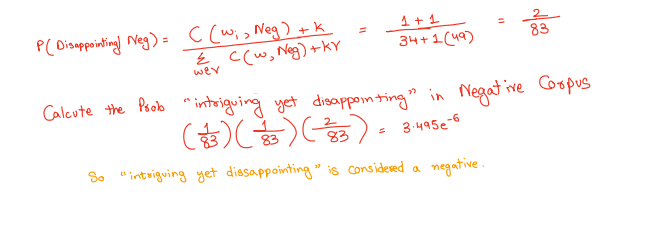 P(Disappointing| Neg) = C(wᵢ, Neg) + k / Σ w∈V C(w, Neg) + kV = 1 + 1 / 34 + 1(49) = 2 / 83
Calcute the Prob "intriguing yet disappointing" in Negative Corpus
(1/83)(1/83)(2/83) = 3.495e⁻⁶
So "intriguing yet dissappointing" is considered a negative.